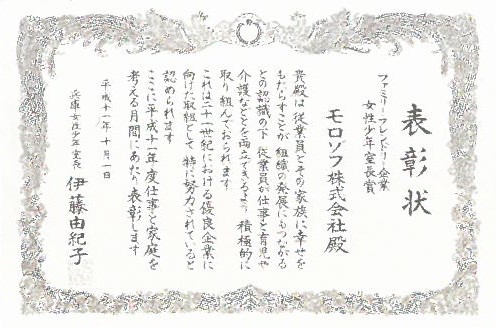 表彰状
ファミリーフレンドリー企業
女性少年室長賞
モロゾフ株式会社殿
貴殿は従業員とその家族に幸せを
もたらすことが組織の発展にもつながる
との認識の下従業員が仕事と育児や
介護などとを両立できるよう積極的に
取り組んでおられます
これは二十一世紀における優良企業に
向けた取組として特に努力されていると
認められます
ここに平成十一年度仕事と家庭を
考える月間にあたり表彰します
平成十一年十月一日
兵庫女性少年室長
伊藤由紀子